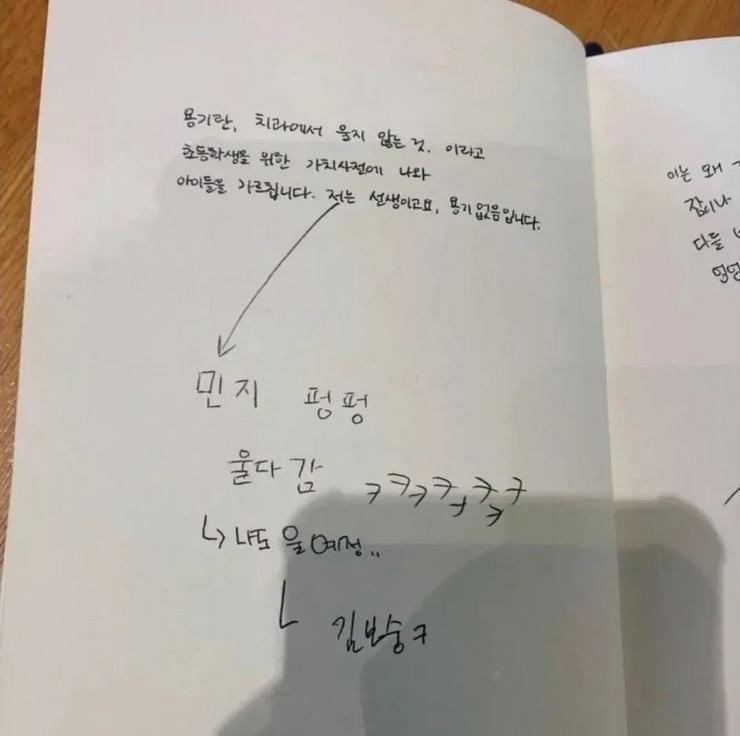 용기란, 치과에서 울지 않는 것. 이라고
초등학생을 위한 가치사전에 나와
아이들을 가르칩니다. 저는 선생이고요, 용기없음입니다.
민지 펑펑
울다감 ㅋㅋㅋㅋㅋㅋㅋ
↳ 나도 울 예정..
ㄴ 김보숭ㅋ
이는 왜
잡이나
다들
엉엉